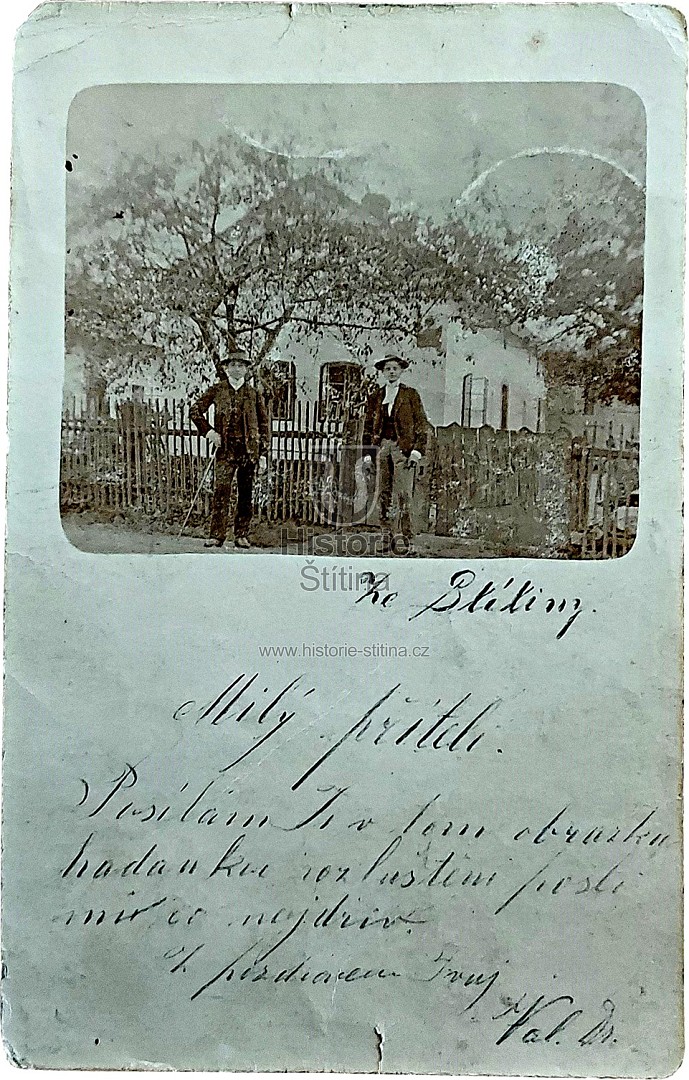 Historie
Štítina
Ze Štítiny.
www.historie-stitina.cz
Milý příteli.
Posílám Ti v tom obrazku
hadanku rozluštění pošli
mi co nejdřív.
S pozdravem Tvuj
Val. Dr.